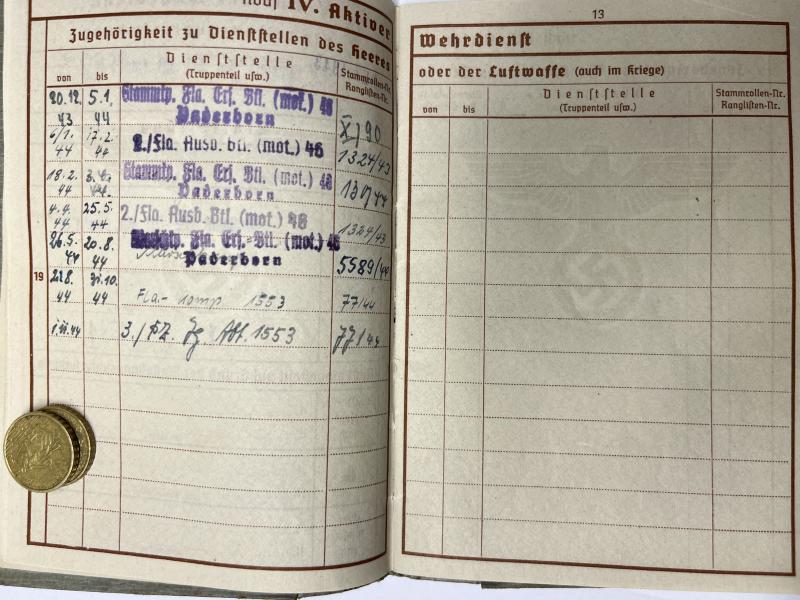 IV. Aktiver
Zugehörigkeit zu Dienststellen des Heeres
von bis Dienststelle (Truppenteil usw.) Stammrollen-Nr. Ranglisten-Nr.
20.12. 43 5.1. 44 Stammkp. Fla. Ers. Btl. (mot.) 46 Paderborn X/90
6/1. 44 17.2. 44 2./Fla. Ausb. Btl. (mot.) 46 1324/43
18.2. 44 3.4. 44 Stammkp. Fla. Ers. Btl. (mot.) 46 Paderborn 130/44
4.4. 44 25.5. 44 2./Fla. Ausb.-Btl. (mot.) 46 1324/43
26.5. 44 20.8. 44 Fla. Ers.-Btl. (mot.) 46 Paderborn 5589/44
19 21.8. 44 31.10. 44 Fla.-komp 1553 77/44
1.11.44 3./Pz. Jg Abt. 1553 77/44
13
Wehrdienst
oder der Luftwaffe (auch im Kriege)
von bis Dienststelle (Truppenteil usw.) Stammrollen-Nr. Ranglisten-Nr.